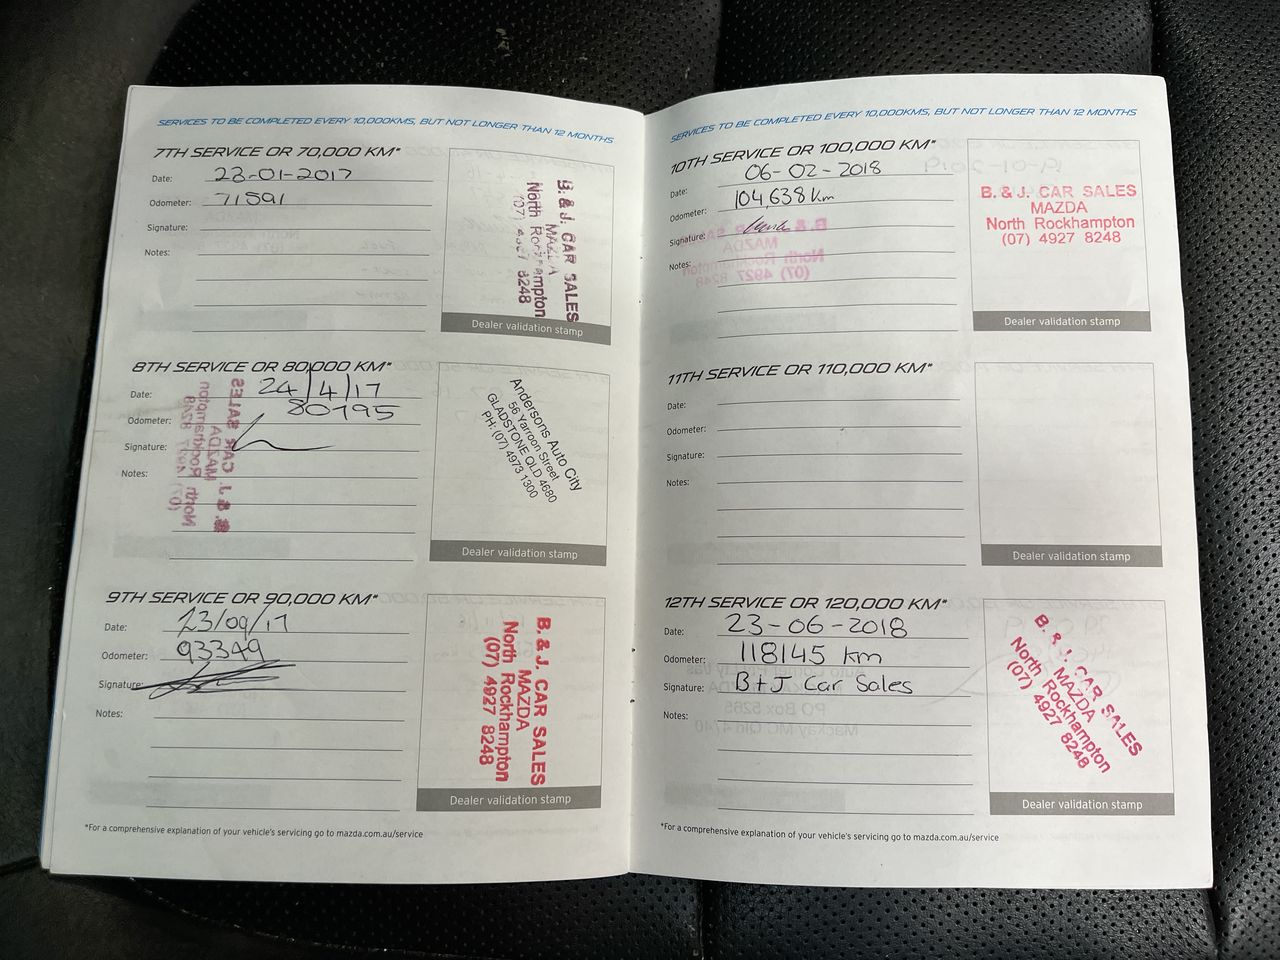 SERVICES TO BE COMPLETED EVERY 10,000KMS, BUT NOT LONGER THAN 12 MONTHS
7TH SERVICE OR 70,000 KM*
Date: 23-01-2017
Odometer: 71591
Signature:
Notes:
B. & J. CAR SALES
MAZDA
North Rockhampton
(07) 4927 8248
Dealer validation stamp
8TH SERVICE OR 80,000 KM*
Date: 24/4/17
Odometer: 80195
Signature:
Notes:
Andersons Auto City
56 Yarroon Street
GLADSTONE QLD 4680
PH: (07) 4973 1300
Dealer validation stamp
9TH SERVICE OR 90,000 KM*
Date: 23/09/17
Odometer: 93349
Signature:
Notes:
B. & J. CAR SALES
MAZDA
North Rockhampton
(07) 4927 8248
Dealer validation stamp
*For a comprehensive explanation of your vehicle's servicing go to mazda.com.au/service
SERVICES TO BE COMPLETED EVERY 10,000KMS, BUT NOT LONGER THAN 12 MONTHS
10TH SERVICE OR 100,000 KM*
Date: 06-02-2018
Odometer: 104,638 Km
Signature:
Notes:
B. & J. CAR SALES
MAZDA
North Rockhampton
(07) 4927 8248
Dealer validation stamp
11TH SERVICE OR 110,000 KM*
Date:
Odometer:
Signature:
Notes:
Dealer validation stamp
12TH SERVICE OR 120,000 KM*
Date: 23-06-2018
Odometer: 118145 km
Signature: B+J Car Sales
Notes:
B. & J. CAR SALES
MAZDA
North Rockhampton
(07) 4927 8248
Dealer validation stamp
*For a comprehensive explanation of your vehicle's servicing go to mazda.com.au/service